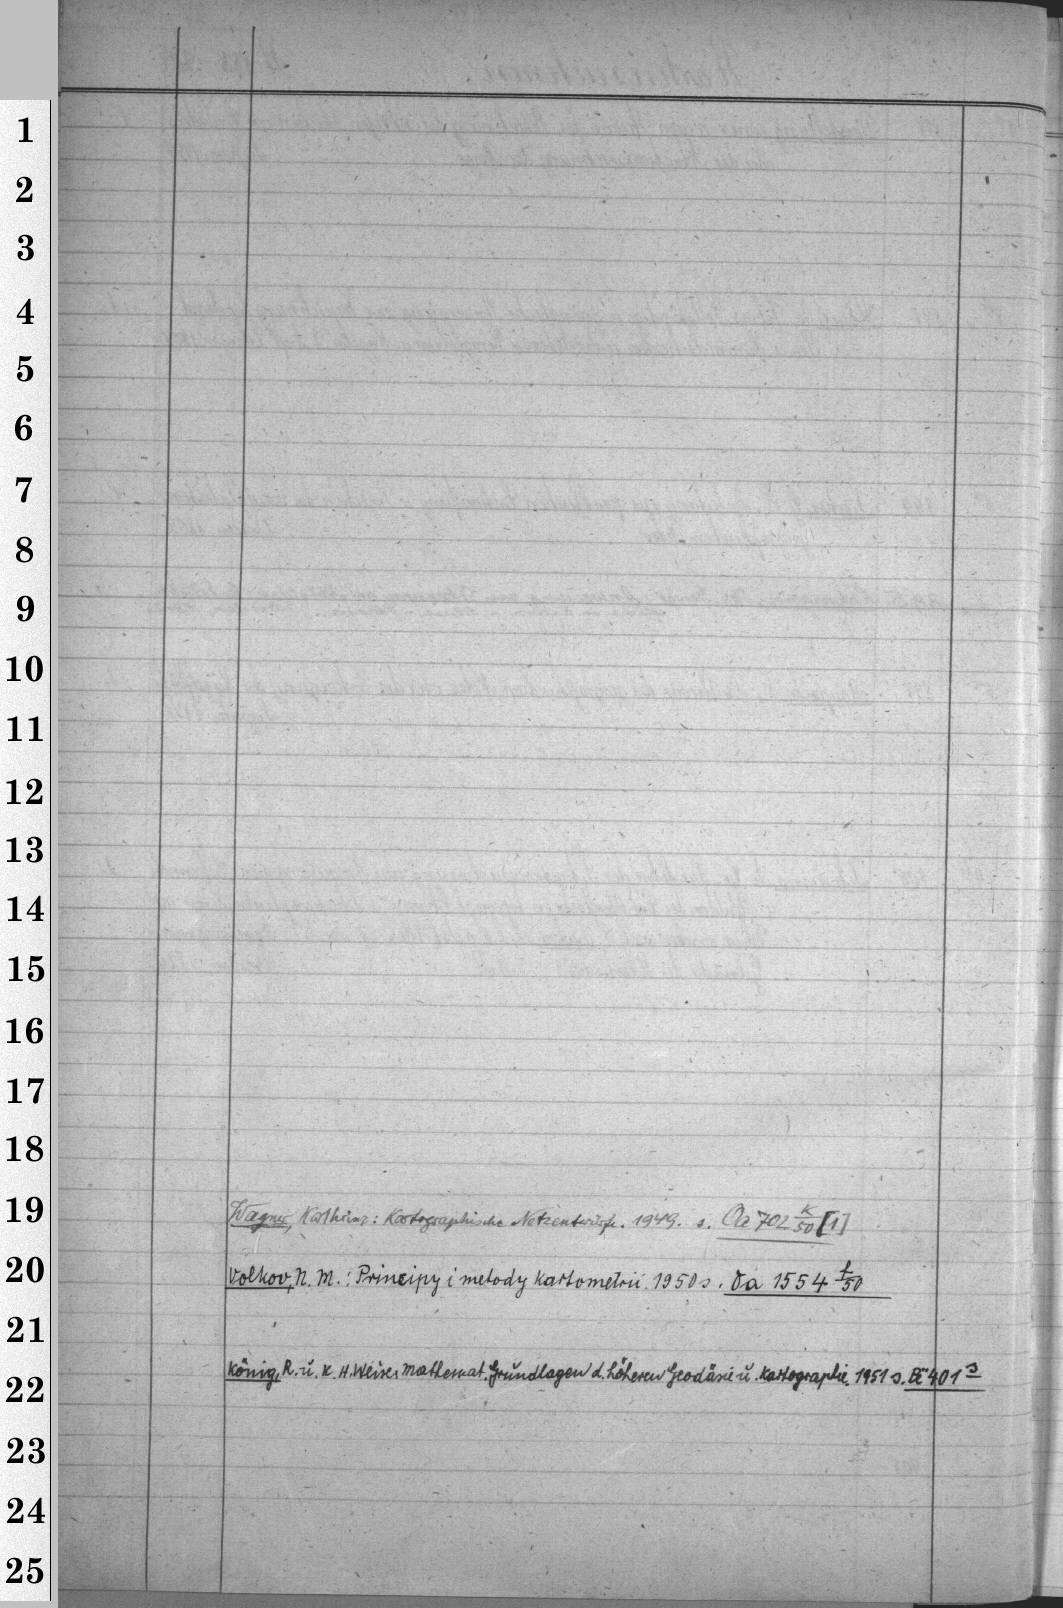 1
2
3
4
5
6
7
8
9
10
11
12
13
14
15
16
17
18
19
Wagner, Karlheinz: Kartographische Netzentwürfe. 1949. s. Oa 702 K/50 [1]
20
Volkov, N. M.: Principy i metody kartometrii. 1950 s. Oa 1554 f/50
21
22
König, R. u. K. H. Weise: Mathemat. Grundlagen d. höheren Geodäsie u. Kartographie. 1951 s. 401
23
24
25